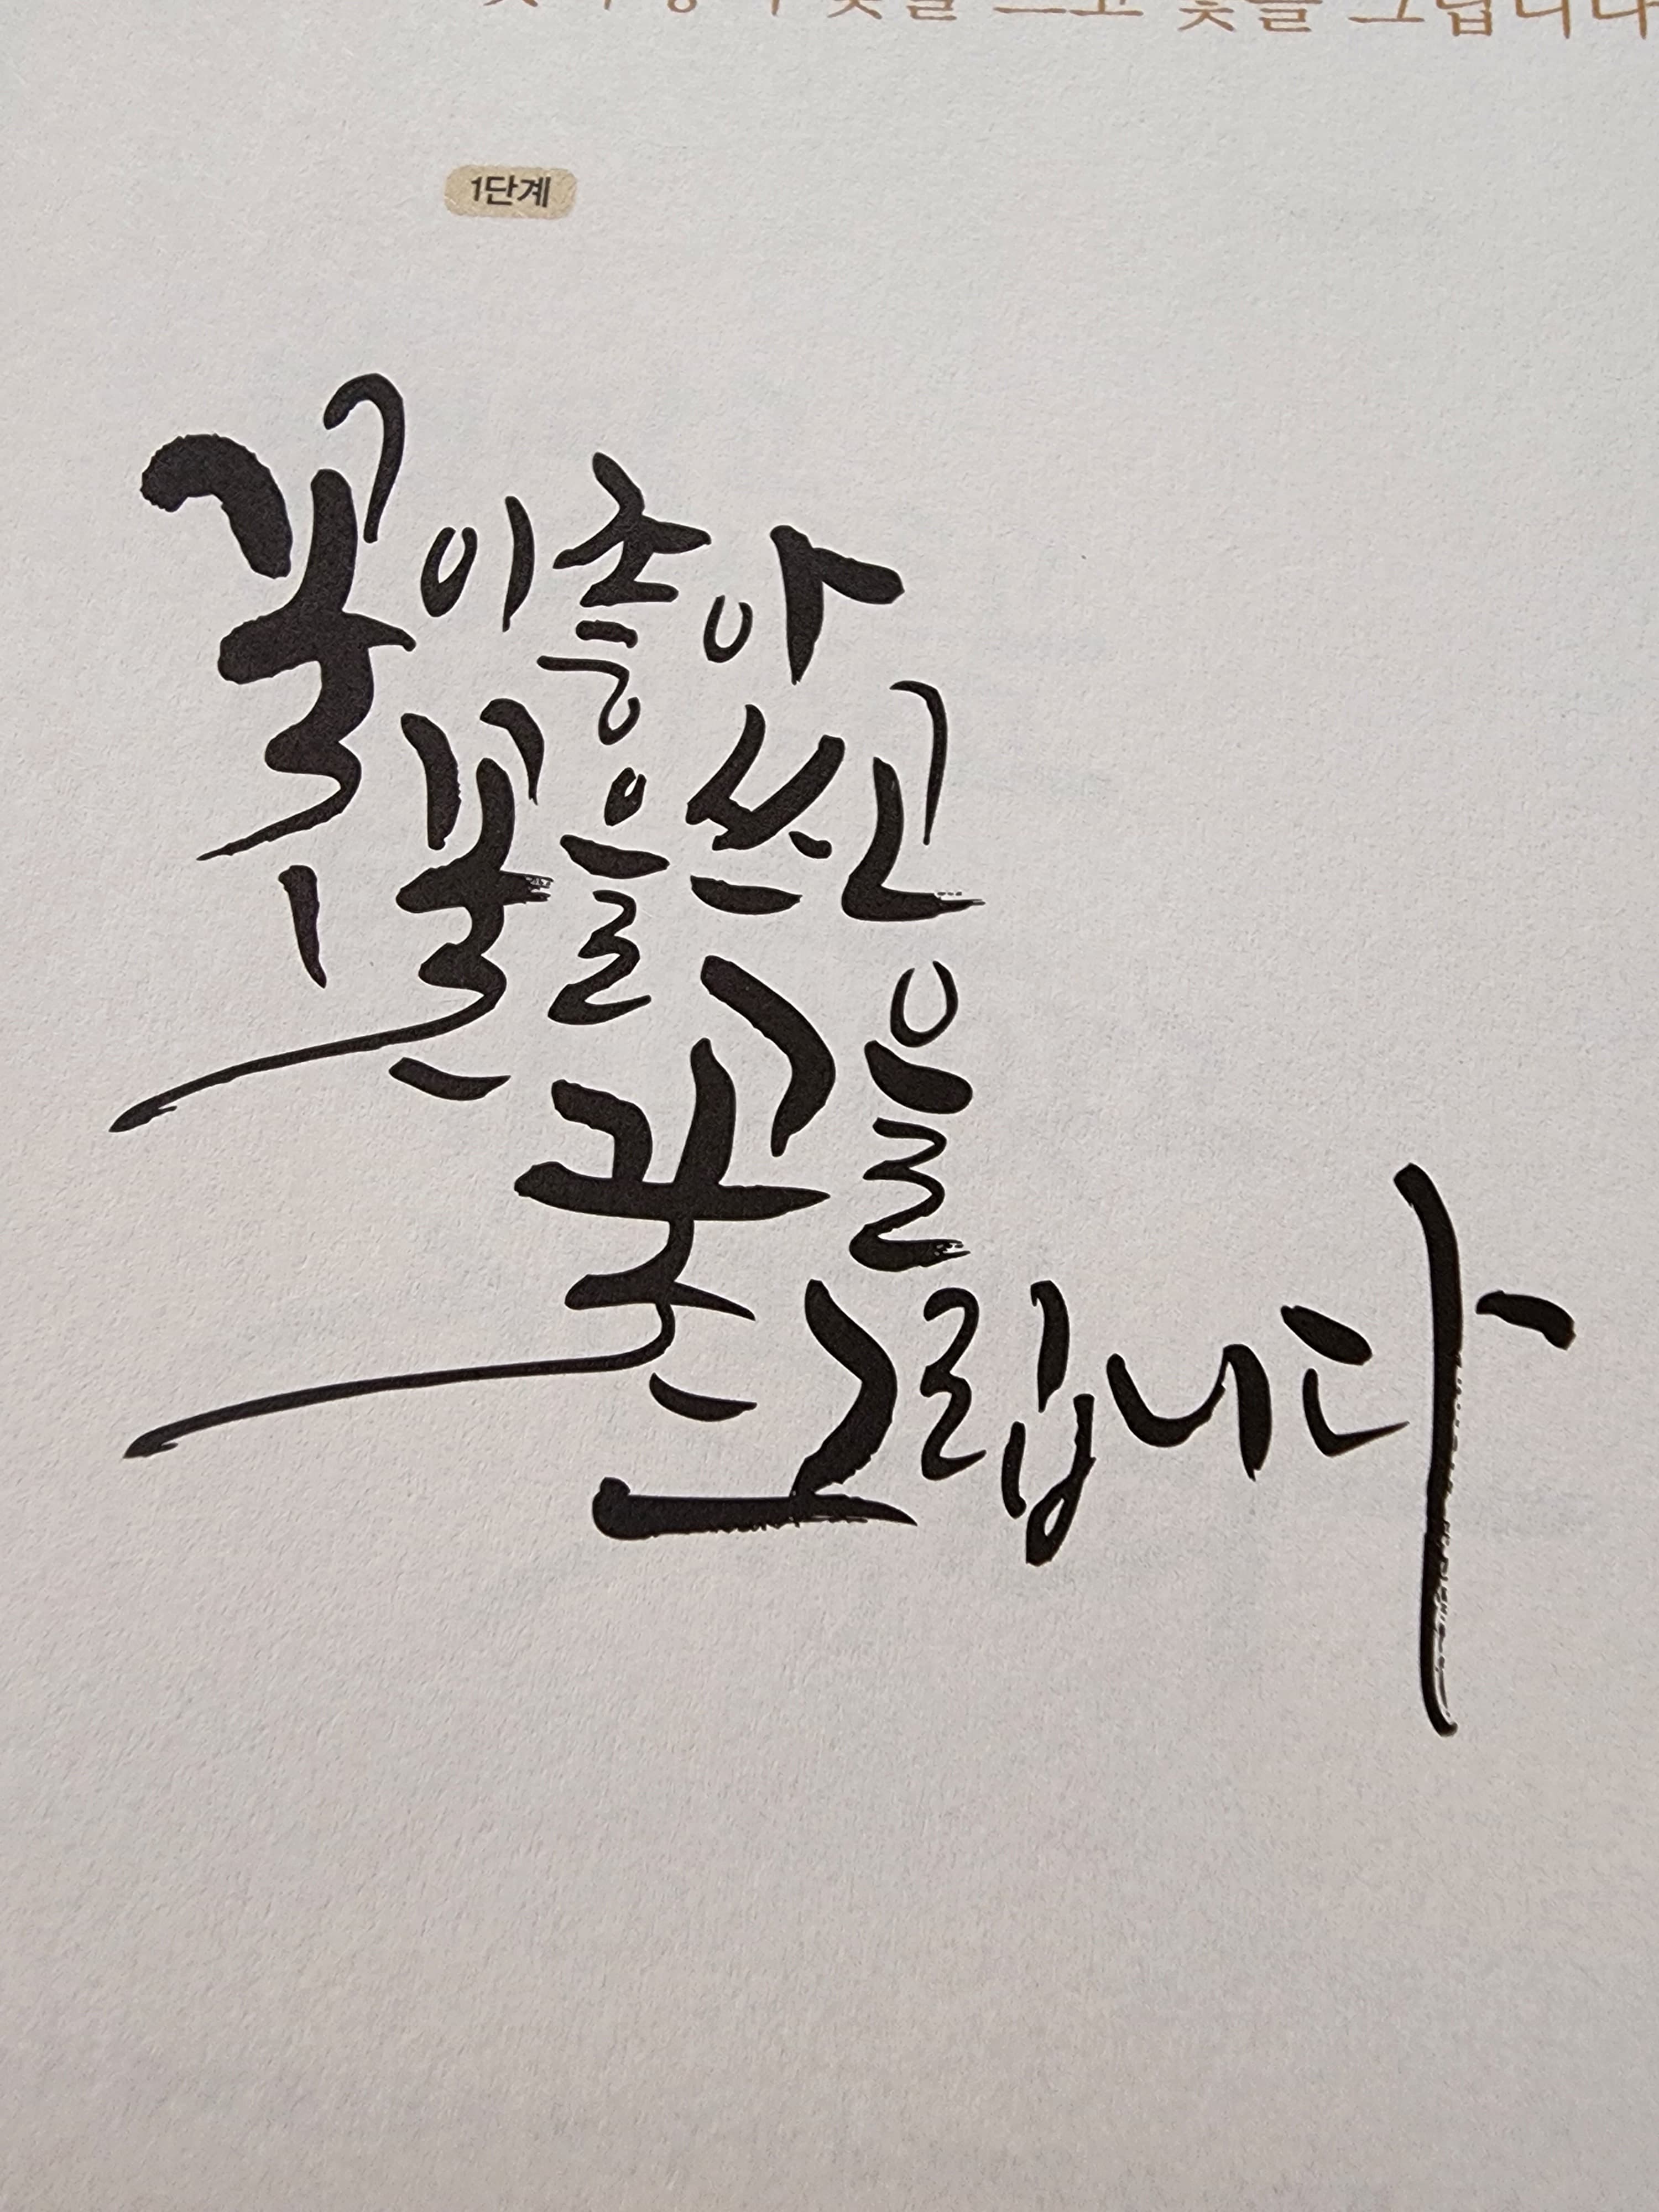 꽃을 쓰고 꽃을 그립니다
1단계
꽃이 좋아
꽃을 쓰고
꽃을
그립니다